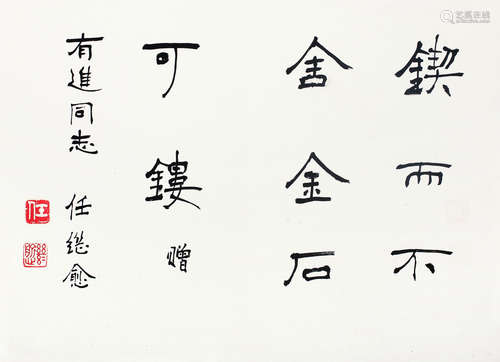 鍥而不
舍金石
可鏤 贈
有進同志 任继愈
任